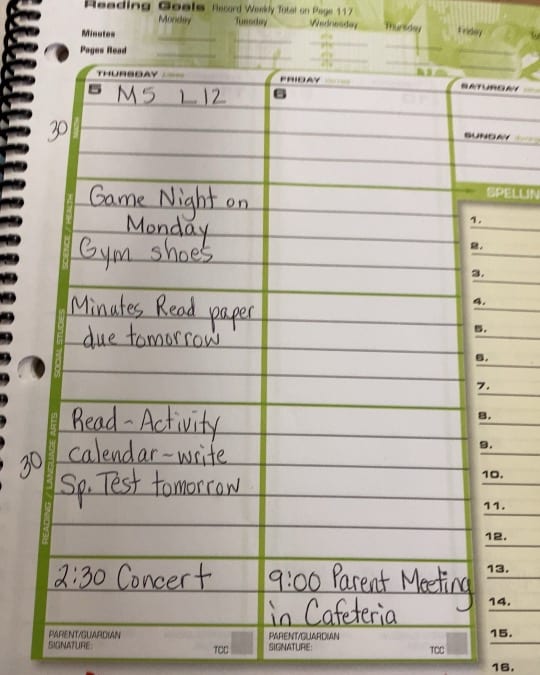 Reading Goals Record Weekly Total on Page 117
Monday Tuesday Wednesday Thursday Friday
Minutes
Pages Read
THURSDAY
5 M5 L12
30
MATH
SCIENCE / HEALTH
Game Night on
Monday
Gym shoes
SOCIAL STUDIES
Minutes Read paper
due tomorrow
READING / LANGUAGE ARTS
Read - Activity
30 calendar - write
Sp. Test tomorrow
2:30 Concert
PARENT/GUARDIAN
SIGNATURE: TCC
FRIDAY
6
9:00 Parent Meeting
in Cafeteria
PARENT/GUARDIAN
SIGNATURE: TCC
SATURDAY
SUNDAY
SPELLIN
1.
2.
3.
4.
5.
6.
7.
8.
9.
10.
11.
12.
13.
14.
15.
16.